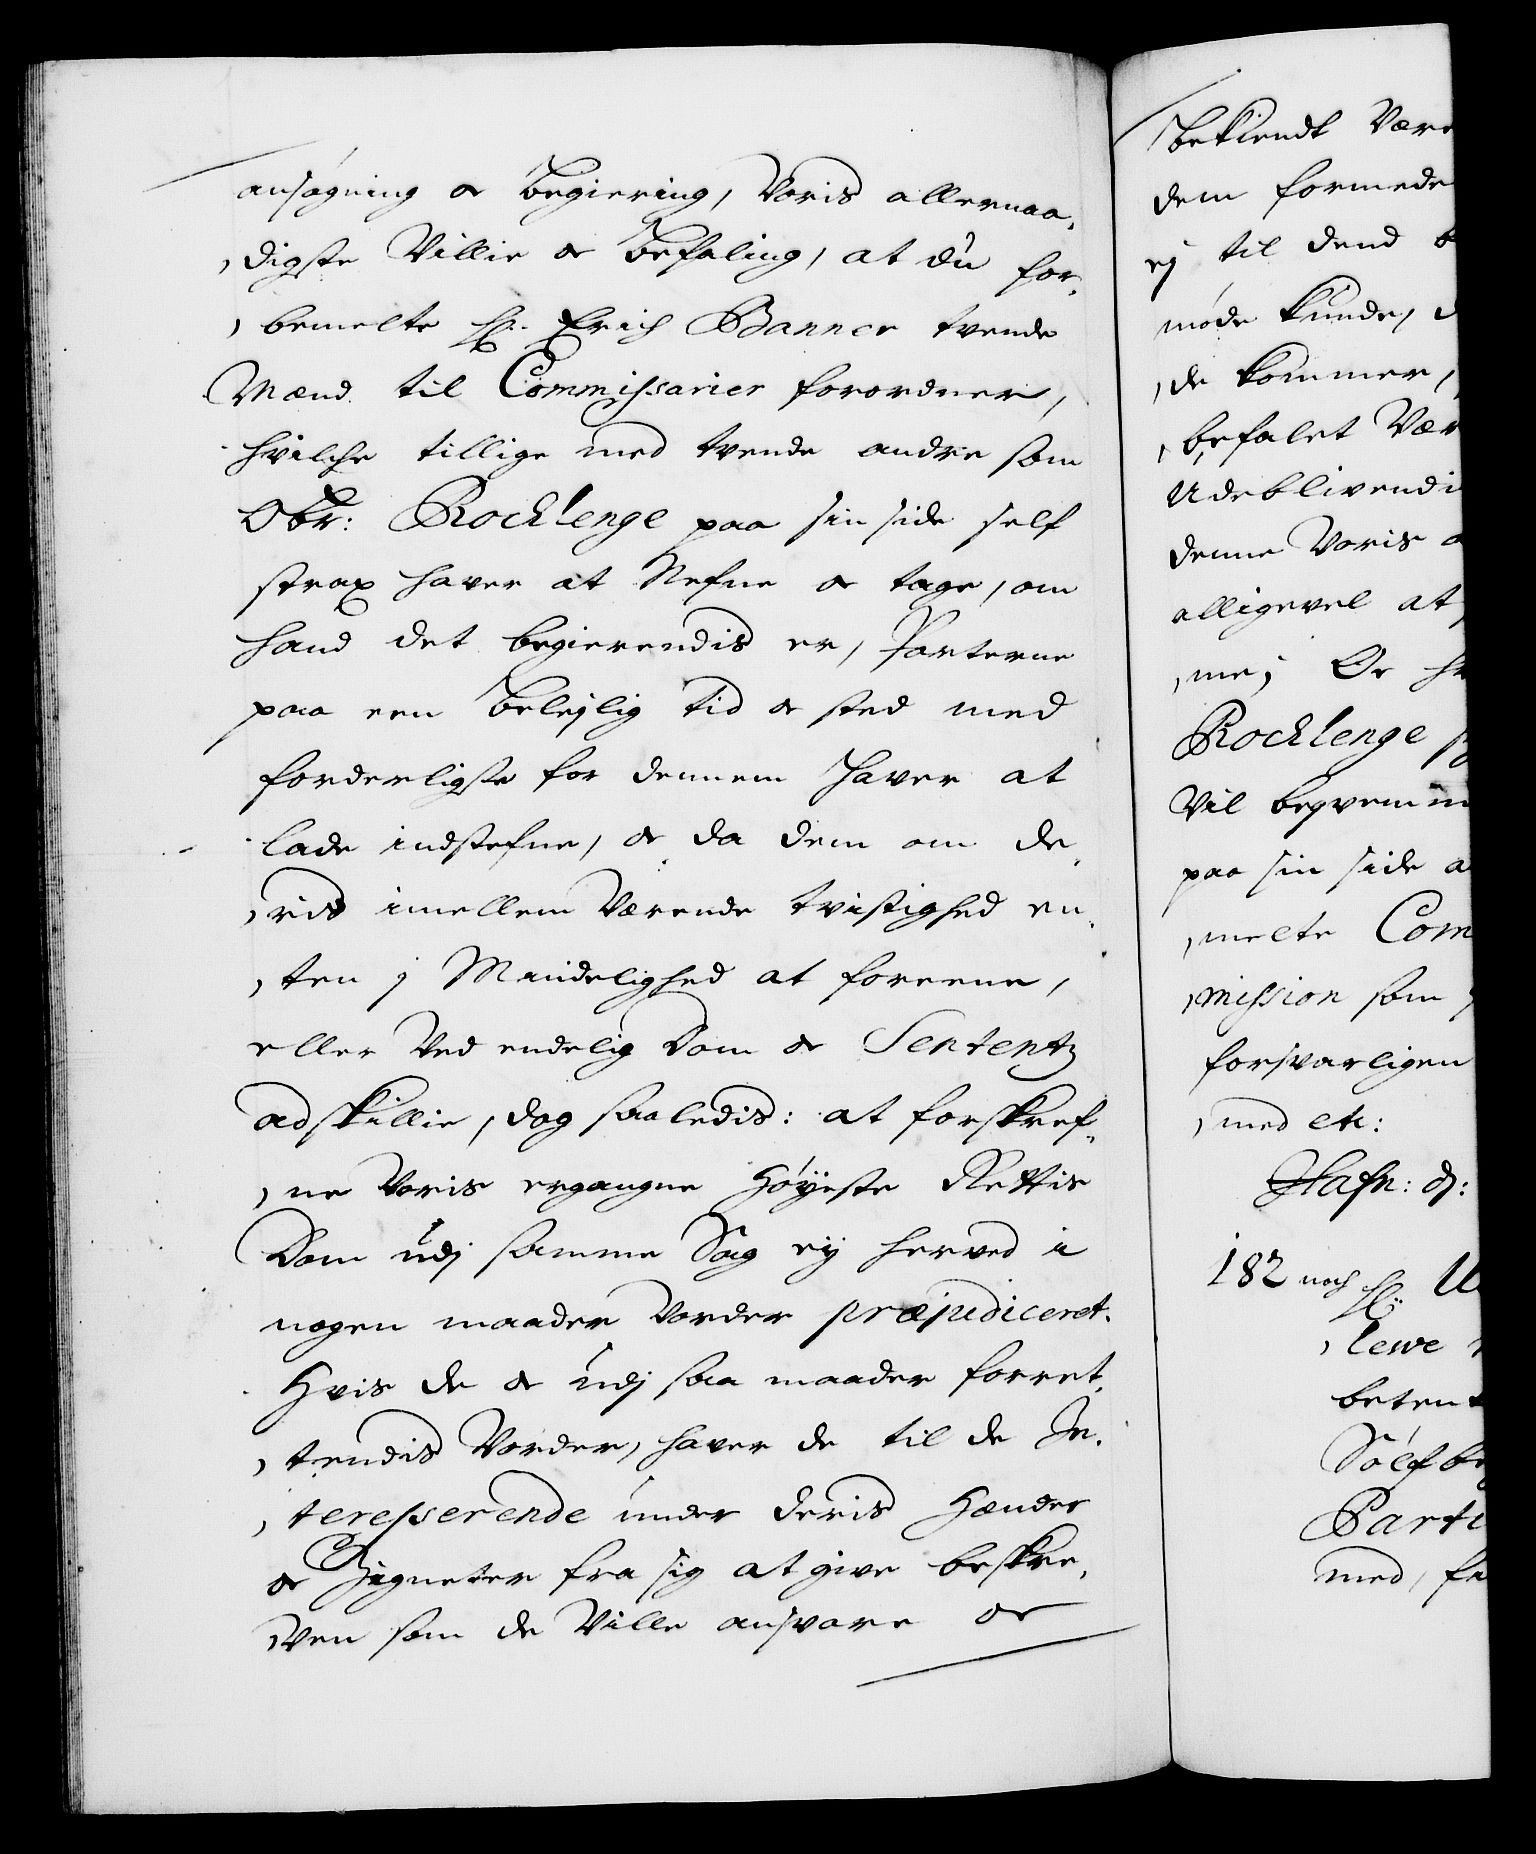 ansøgning oc begiering, Voris allernaa,
,digste Villie oc befaling, at du for,
,bemelte Hr. Erich Banner tvende
Mænd til Commissarier forordner,
hvilche tillige med tvende andre som
Obr: Rocklenge paa sin side self
strax hafver at Nefne oc tage, om
hand det begierendis er, Parterne
paa een beleylig tid oc sted med
forderligste for dennem hafver at
lade indstefne, oc da dem om de,
,ris imellem Værende tvistighed en,
,ten j Mindelighed at foreene,
eller Ved endelig Dom oc Sententz
adskillie, dog saaledis: at forskref,
,ne Voris ergangne Høyeste Rettis
Dom udj samme Sag ey herved i
nogen maader Vorder præjudiceret.
Hvis de oc udj saa maader forret,
,tendis Vorder, hafver de til de In,
,teresserende under deris Hænder
oc Zigneter fra sig at give beskre,
,ven som de Ville ansvare oc
bekiendt Være
dem formede
ej til dend b
møde kunde, d
,de kommer,
,befalet Vær
Udeblivendi
denne Voris a
alligevel at
,me; Oc h
Rocklenge s
Vil beqvemm
paa sin side a
,melte Com
,mission som
forsvarligen
,med etc:
Hafn: d:
182 noch Hr: U
,lewe
betent
Sølfbe
Parti
med, fr